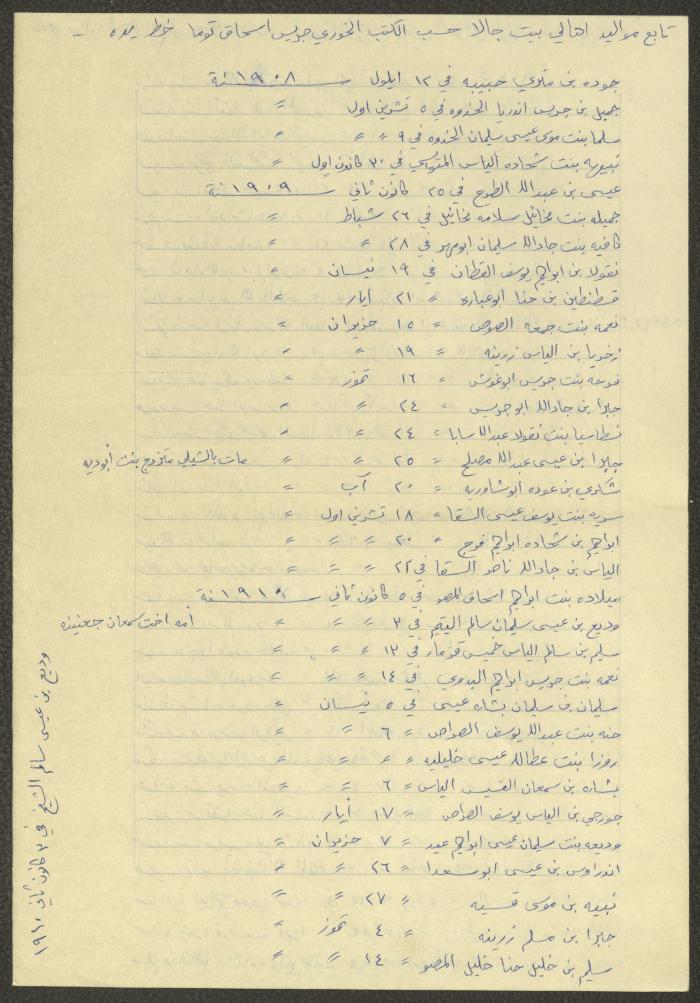 تابع مواليد اهالي بيت جالا حسب الكتب الخوري جريس اسحاق توما خط يده
جوده بن متري حبيبه في ١٢ ايلول سنة ١٩٠٨
جميل بن جريس اندريا الحذوه في ٥ تشرين اول =
سلما بنت موسى عيسى سليمان الحذوه في ٩ = = =
نبيهه بنت شحاده الياس المتواسي في ٣٠ كانون اول =
عيسى بن عبدالله الطوح في ٢٥ كانون ثاني سنة ١٩٠٩
جميله بنت مخائيل سلامه مخائيل في ٢٦ شباط =
كافيه بنت جادالله سليمان ابومهر في ٢٨ = =
نقولا بن ابراهيم يوسف القطان في ١٩ نيسان =
قسطنطين بن حنا ابوعباره = ٢١ أيار =
نعمه بنت جمعه الصوص = ١٥ حزيران =
زخريا بن الياس زرينه = ١٩ = =
فرحه بنت جريس ابوغوش = ١٦ تموز =
جبرا بن جادالله ابو جريس = ٢٤ = =
نسطاسيا بنت نقولا عبدالله سابا = ٢٤ = =
جبرا بن عيسى عبدالله مصلح = ٢٥ = = مات بالتشيلي متزوج بنت أبوديه
شكري بن عوده ابوشاوريه = ٢٠ آب =
سريه بنت يوسف عيسى السقا = ١٨ تشرين اول =
ابراهيم بن شحاده ابراهيم فرج = ٢٠ = = =
الياس بن جادالله ناصر السقا في ٢٢ = = =
ميلاده بنت ابراهيم اسحاق المصو في ٥ كانون ثاني سنة ١٩١٠
وديع بن عيسى سليمان سالم اليتيم في ٣ = = = أمه اخت سمعان جعنينه
سليم بن سالم الياس خميس قزمار في ١٣ = = =
نعمه بنت جريس ابراهيم البدوي في ١٤ = = =
سليمان بن سليمان بشاره عيسى في ٥ نيسان =
حنه بنت عبدالله يوسف الصراص = ٦ = =
روزا بنت عطالله عيسى خليليه = = = =
بشاره بن سمعان القسيس الياس = ٦ = =
جورجي بن الياس يوسف الصراص = ١٧ أيار =
وديعه بنت سليمان عيسى ابراهيم عيد = ٧ حزيران =
اندراوس بن عيسى ابوسعدا = ٢٦ = =
نبيه بن موسى قسيه = ٢٧ = =
جبرا بن مسلم زرينه = ٤ تموز =
سليم بن خليل حنا خليل المصو = ١٤ = =
وديع بن عيسى سالم الشيخ في ٣ كانون ثاني ١٩١٠